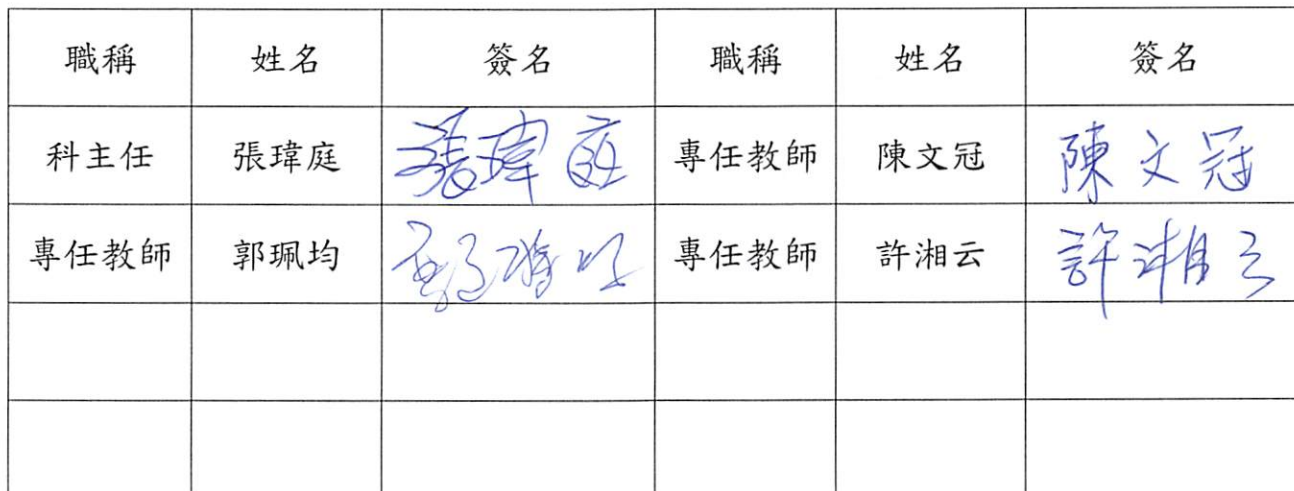 職稱 姓名 簽名 職稱 姓名 簽名
科主任 張瑋庭 張瑋庭 專任教師 陳文冠 陳文冠
專任教師 郭珮均 專任教師 許湘云 許湘云